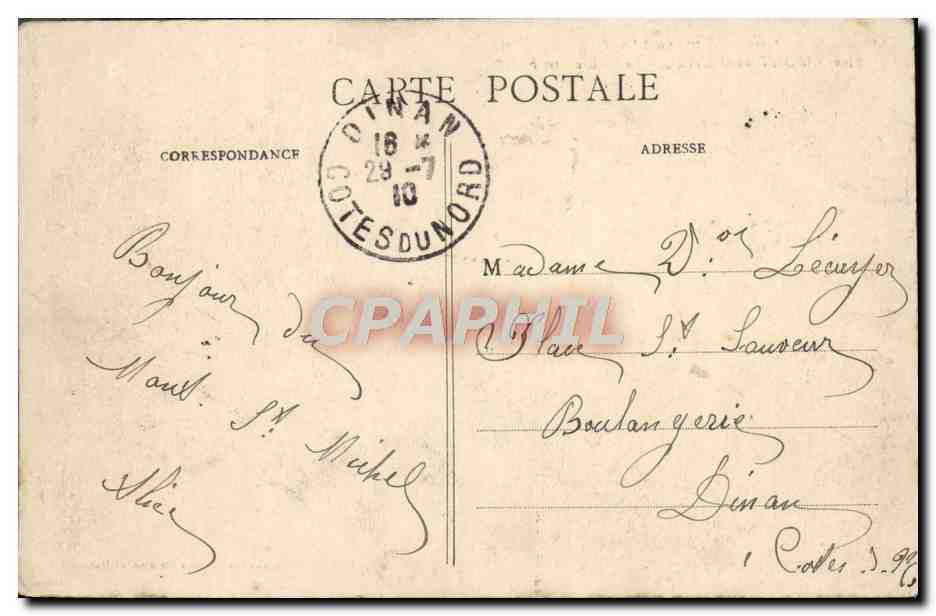 CARTE POSTALE
CORRESPONDANCE
ADRESSE
DINAN
16
29 -7
10
COTES DU NORD
Bonjour du
Mont St Michel
Alice
Madame Lécuyer
Place St Sauveur
Boulangerie
Dinan
Côtes
CPAPHIL